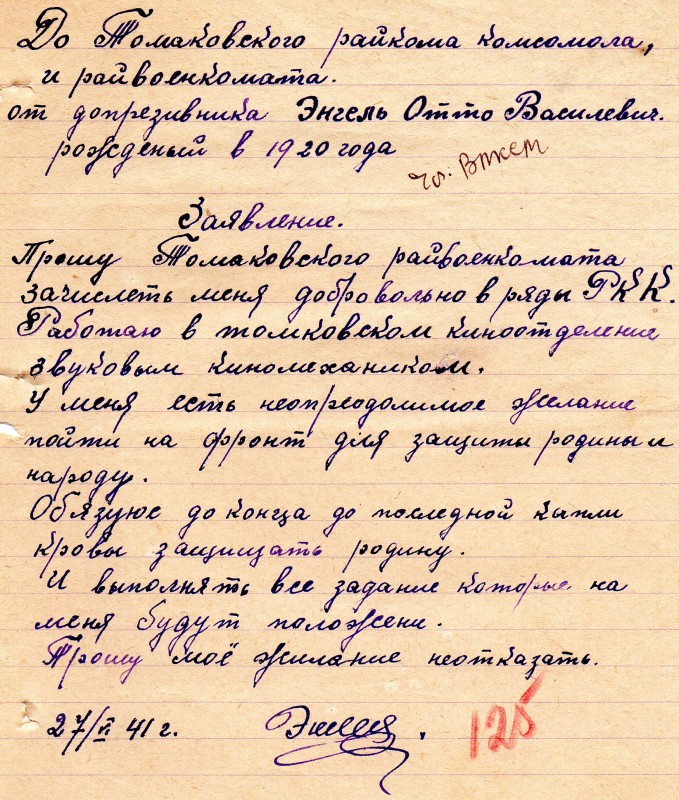 До Томаковского райкома комсомола,
и райвоенкомата.
от допрезивника Энгель Отто Василевич.
рожденый в 1920 года
Заявление.
Прошу Томаковского райвоенкомата
зачислеть меня добровольно в ряды РКК.
Работаю в томковском киноотделение
звуковым киномехаником.
У меня есть неопреодолимое желание
пойти на фронт для защиты родины и
народу.
Обязуюс до конца до последной капли
кровы защищать родину.
И выполнять все задание которые на
меня будут положени.
Прошу моё жилание неотказать.
27/VI 41 г.
125